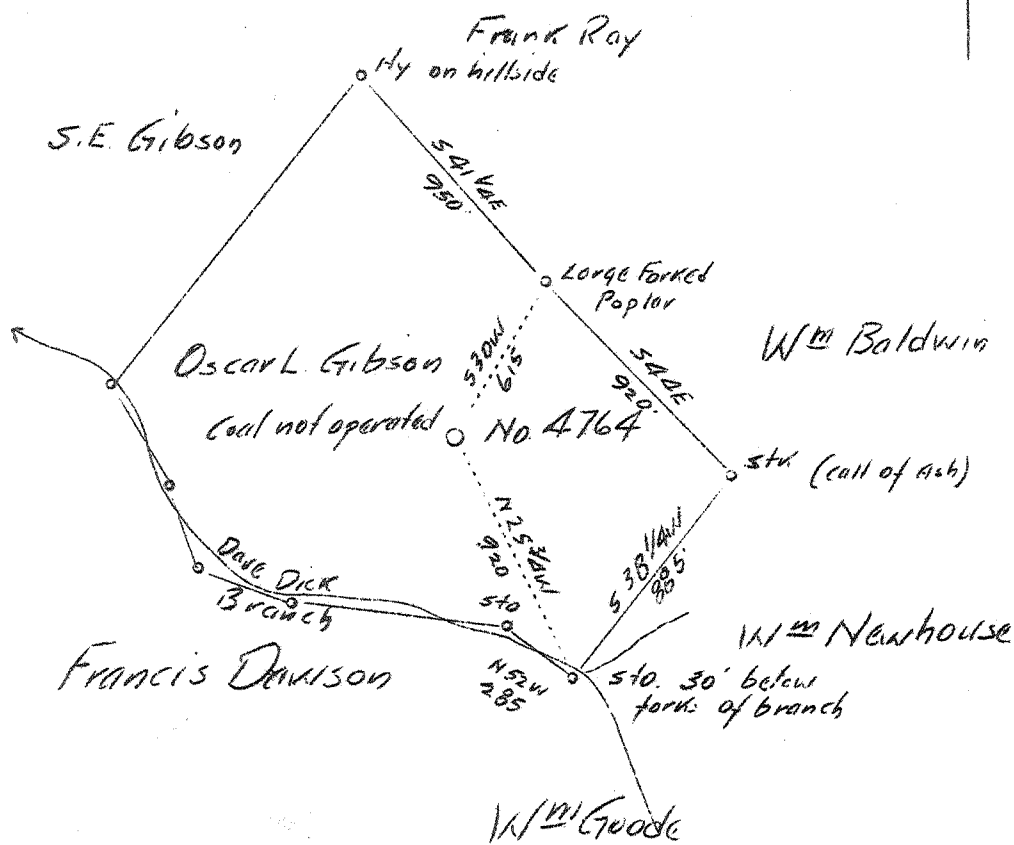 Frank Ray
Hy on hillside
S.E. Gibson
S 41 1/4 E
950'
Large Forked
Poplar
Wm Baldwin
Oscar L. Gibson
S 30 W
615
S 44 E
920'
Coal not operated
No. 4764
stk (call of Ash)
N 25 3/4 W
920
S 38 1/4 W
885'
Dave Dick
Branch
Sto
Wm Newhouse
Francis Davison
N 52 W
285
Sto. 30' below
forks of branch
Wm Goode